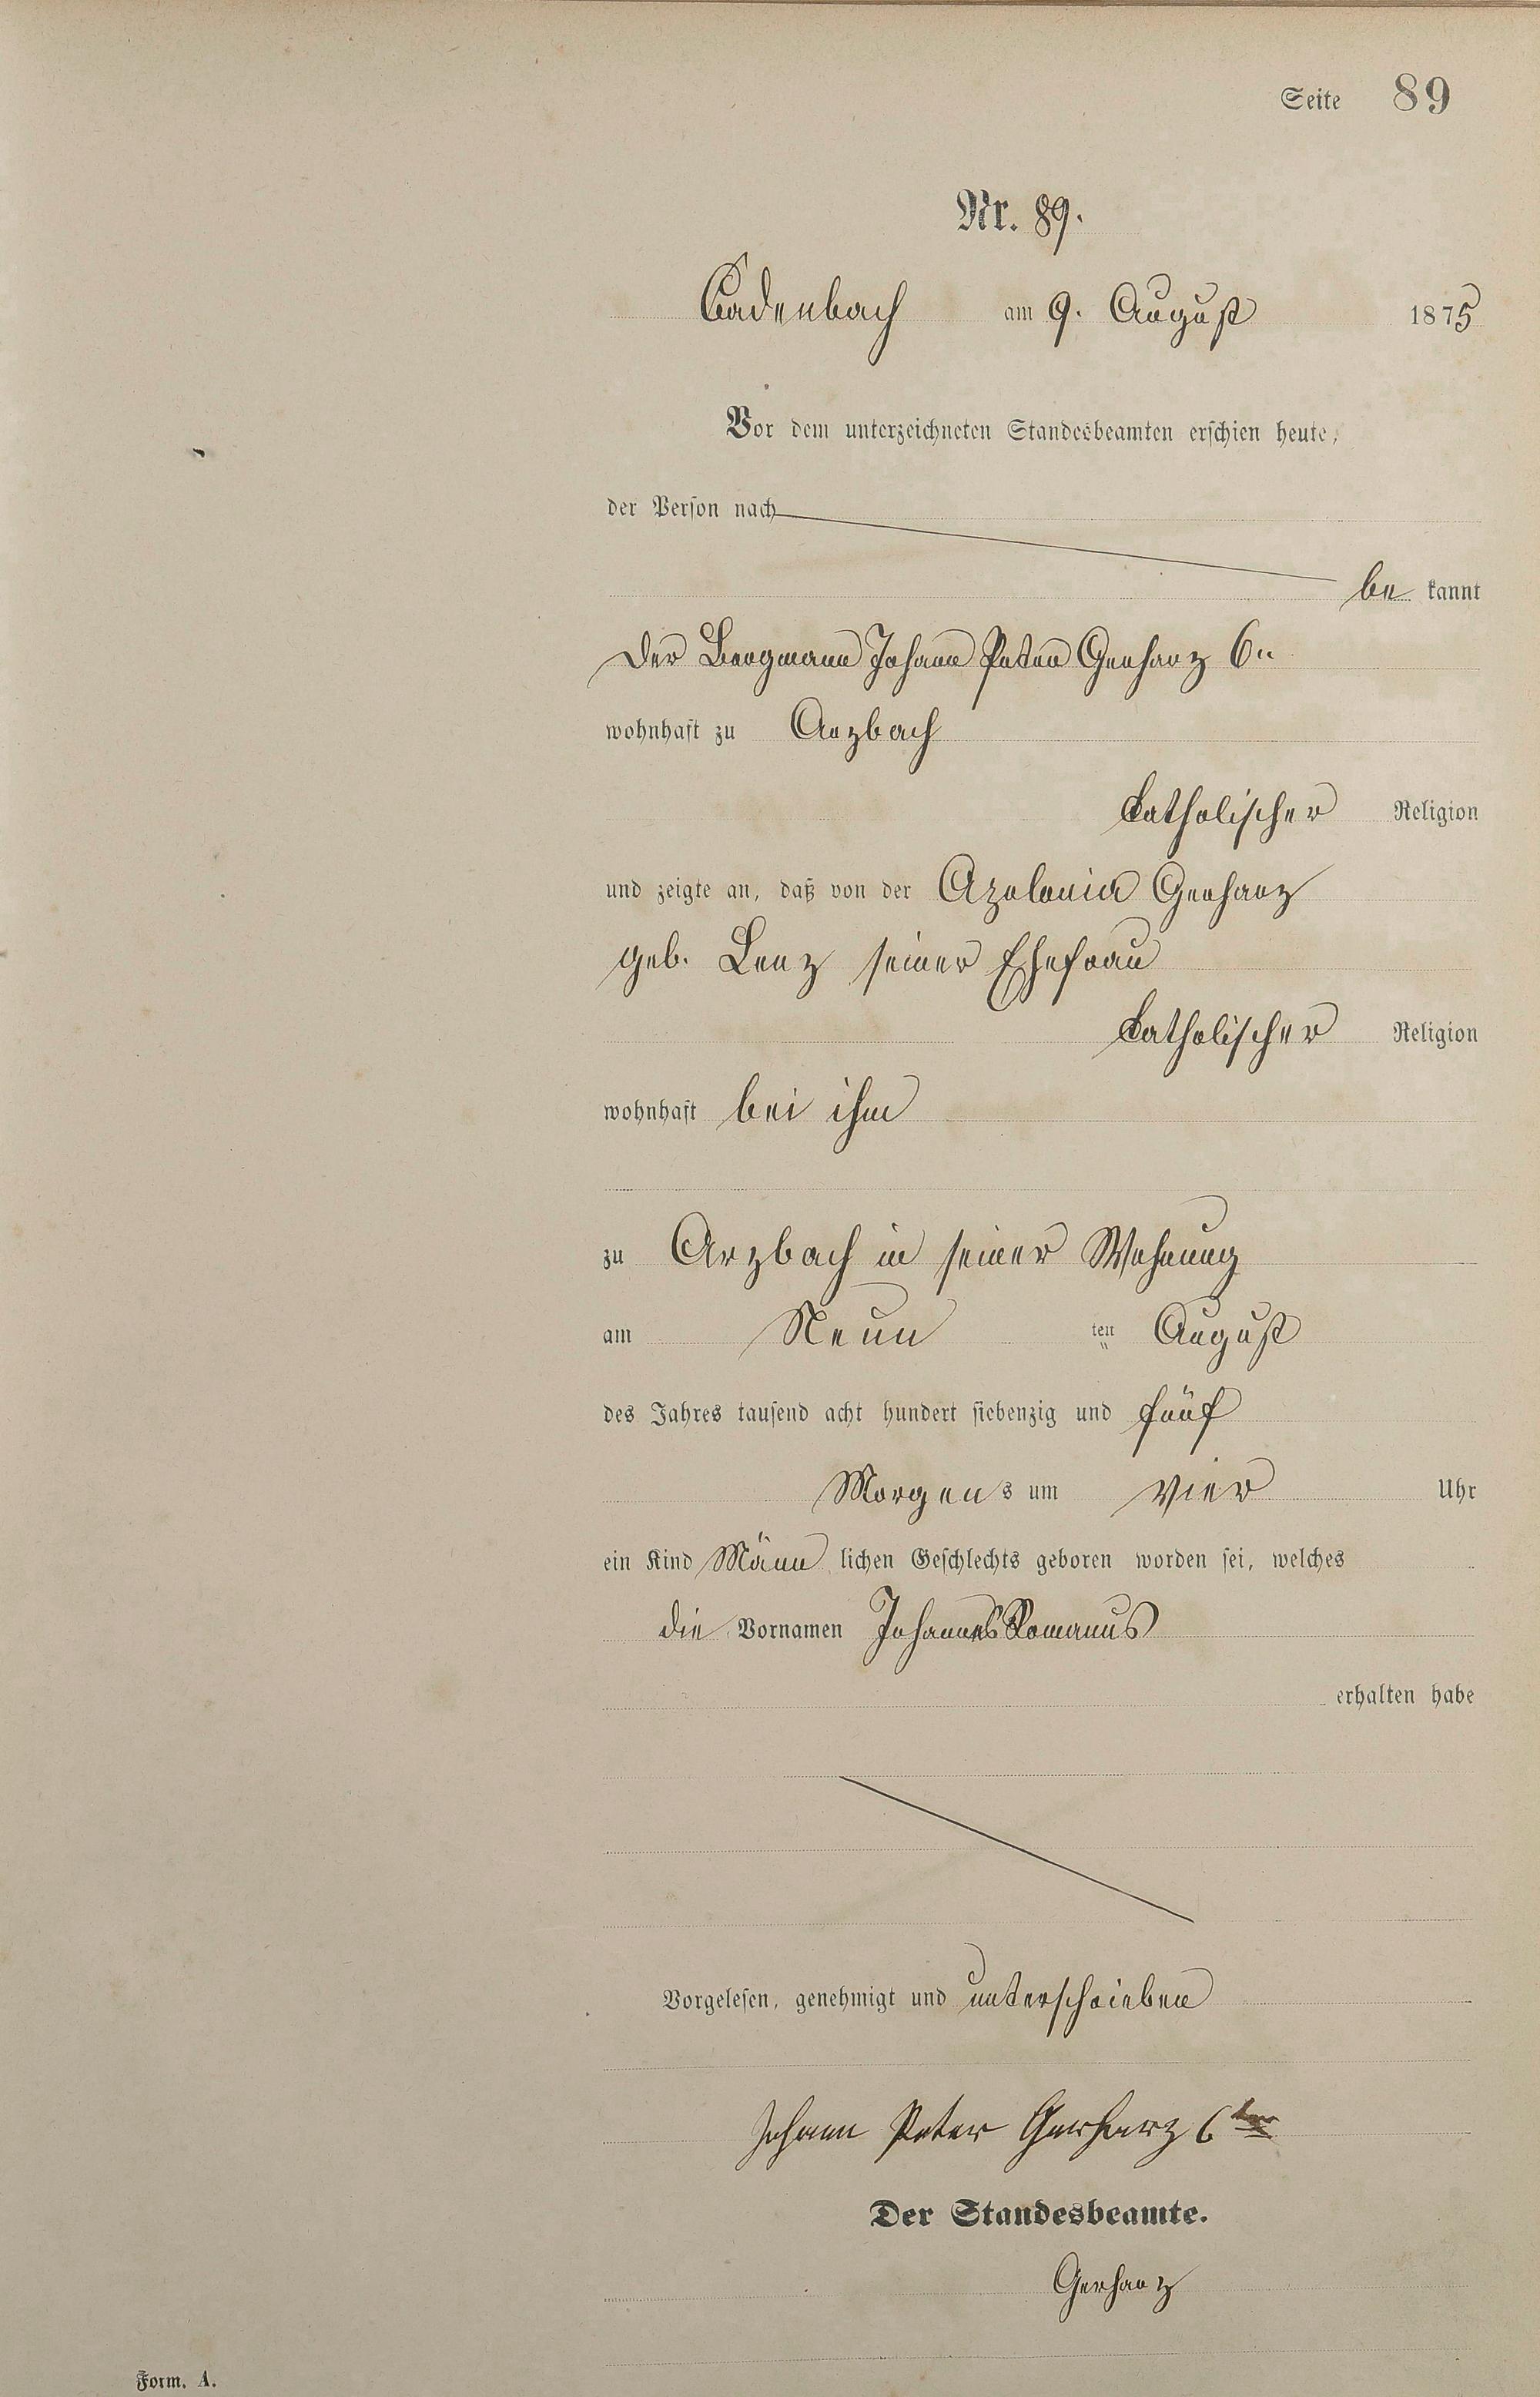 Seite 89
Nr. 89.
Cadenbach am 9. August 1875
Vor dem unterzeichneten Standesbeamten erschien heute,
der Person nach
be kannt
der Bergmann Johann Peter Gerharz 6"
wohnhaft zu Arzbach
katholischer Religion
und zeigte an, daß von der Apolonia Gerharz
geb. Lenz seiner Ehefrau
katholischer Religion
wohnhaft bei ihm
zu Arzbach in seiner Wohnung
am Neun ten August
des Jahres tausend acht hundert siebenzig und fünf
Morgens um vier Uhr
ein Kind Männ lichen Geschlechts geboren worden sei, welches
die Vornamen Johannes Romanus
erhalten habe
Vorgelesen, genehmigt und unterschrieben
Johann Peter Gerharz 6ter
Der Standesbeamte.
Gerharz
Form. A.